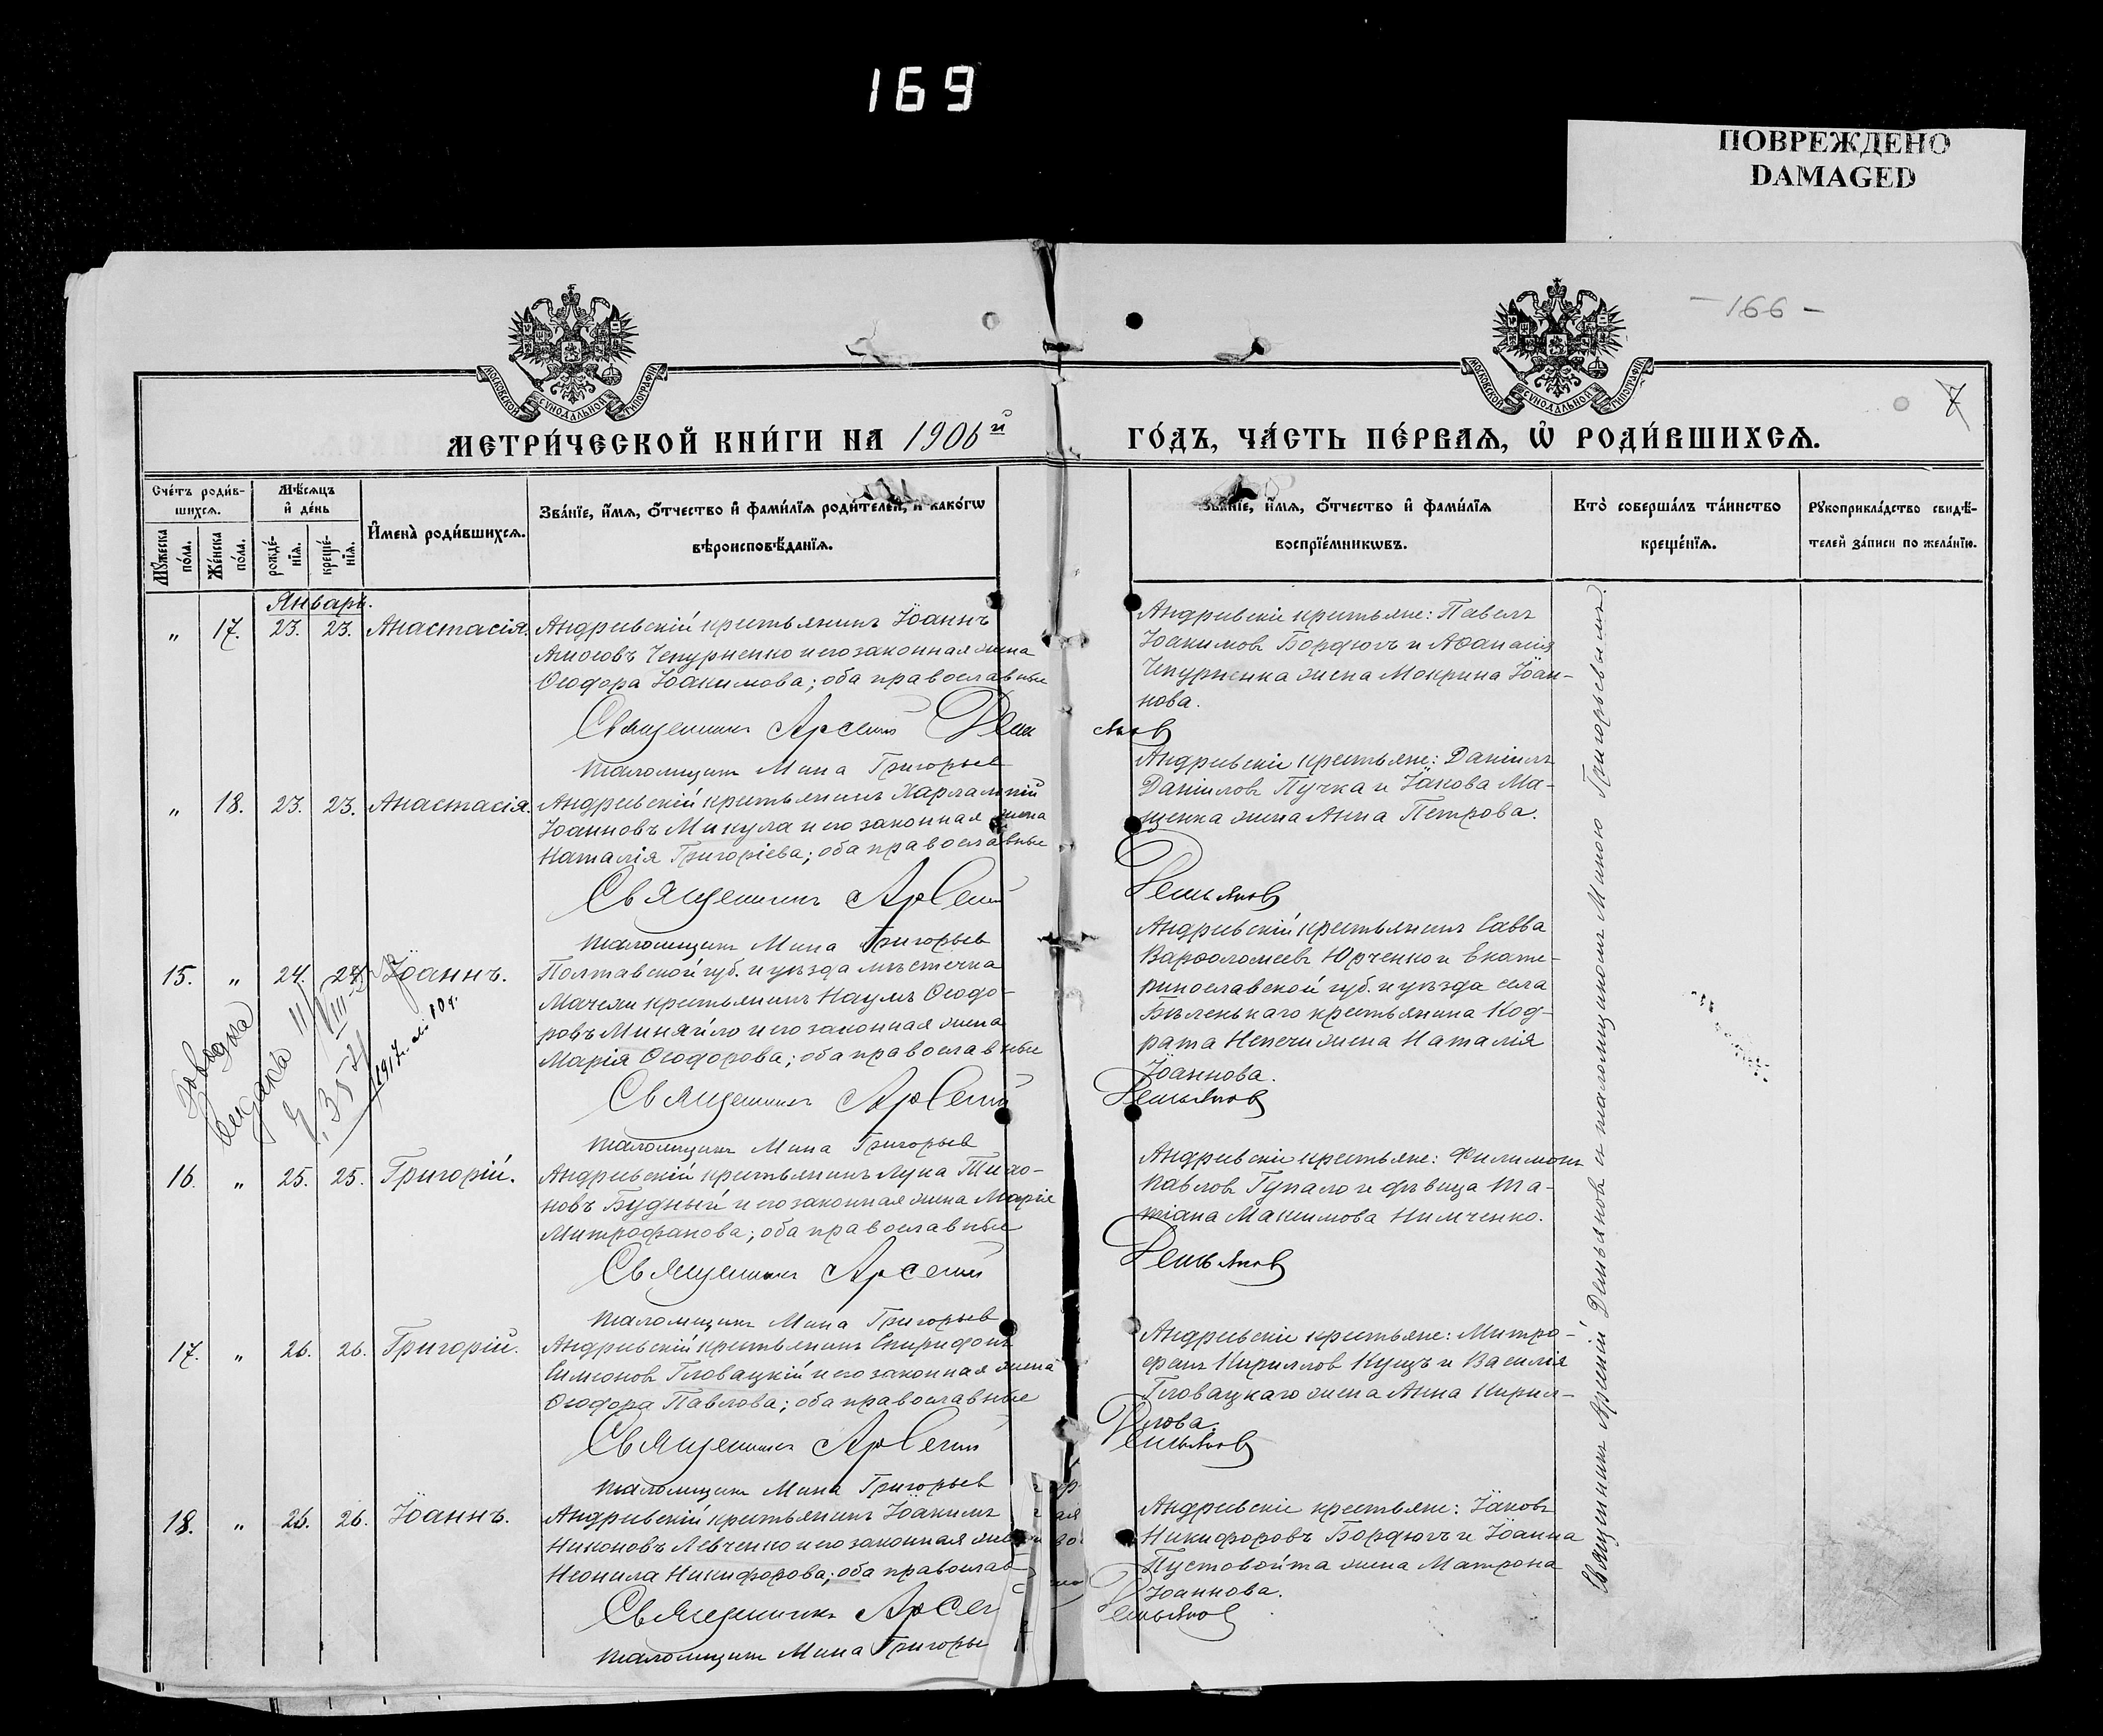 169
ПОВРЕЖДЕНО
DAMAGED
- 166 -
7
МОСКОВСКОЙ СѴНОДАЛЬНОЙ ТИПОГРАФІИ
МОСКОВСКОЙ СѴНОДАЛЬНОЙ ТИПОГРАФІИ
МЕТРИ́ЧЕСКОЙ КНИ́ГИ НА 1906й
ГО́ДЪ, ЧА́СТЬ ПЕ́РВАѦ, Ѡ҆ РОДИ́ВШИХСѦ.
Сче́тъ роди́в-
шихсѧ.
Мꙋ́жеска по́ла.
Же́нска по́ла.
Мѣ́сѧцъ
и҆ де́нь
рожде́-
нїѧ.
креще́-
нїѧ.
И҆мена̀ роди́вшихсѧ.
Зва́нїе, и҆́мѧ, ѻ҆́тчество и҆ фами́лїѧ роди́телей, и҆ како́гѡ
вѣроисповѣ́данїѧ.
Зва́нїе, и҆́мѧ, ѻ҆́тчество и҆ фами́лїѧ
воспрїе́мникѡвъ.
Кто̀ соверша́лъ та́инство
креще́нїѧ.
Рꙋкоприкла́дство свидѣ́-
телей за́писи по жела́нїю.
Январь.
„ 17. 23. 23. Анастасія. Андреевскій крестьянинъ Іоаннъ
Амосовъ Чепурненко и его законная жена
Ѳеодора Іоакимова; оба православные
Священникъ Арсеній Демьяновъ
Псаломщикъ Мина Григорьев
Андреевскіе крестьяне: Павелъ
Іоакимов Бордюгъ и Аѳанасія
Чепурненка жена Мокрина Іоан-
нова.
„ 18. 23. 23. Анастасія. Андреевскій крестьянинъ Харлампій
Іоанновъ Микула и его законная жена
Наталія Григоріева; оба православные
Священникъ Арсеній Демьянов
Псаломщикъ Мина Григорьев
Андреевскіе крестьяне: Даніилъ
Даніилов Пучка и Іакова Ма-
щенка жена Анна Петрова.
15. „ 24. 24. Іоаннъ. Полтавской губ. и уѣзда мѣстечка
Мачехи крестьянинъ Наумъ Ѳеодо-
ровъ Миняйло и его законная жена
Марія Ѳеодорова; оба православные
Священникъ Арсеній Демьянов
Псаломщикъ Мина Григорьев
выдана
1917 г.
Андреевскій крестьянинъ Савва
Варѳоломеевъ Юрченко и Екате-
ринославской губ. и уѣзда села
Бѣленькаго крестьянина Код-
рата Непечи жена Наталія
Іоаннова.
16. „ 25. 25. Григорій. Андреевскій крестьянинъ Лука Тихо-
новъ Будный и его законная жена Марія
Митрофанова; оба православные
Священникъ Арсеній Демьянов
Псаломщикъ Мина Григорьев
Андреевскіе крестьяне: Филимонъ
Павлов Гупало и дѣвица Та-
тіана Максимова Нимченко.
17. „ 26. 26. Григорій. Андреевскій крестьянинъ Спиридонъ
Симеонов Гловацкій и его законная жена
Ѳеодора Павлова; оба православные
Священникъ Арсеній Демьянов
Псаломщикъ Мина Григорьев
Андреевскіе крестьяне: Митро-
фанъ Кириллов Кущъ и Василія
Гловацкаго жена Анна Кирил-
лова.
18. „ 26. 26. Іоаннъ. Андреевскій крестьянинъ Іоакимъ
Никоновъ Левченко и его законная жена
Неонила Никифорова; оба православ
Священникъ Арсен Демьянов
Псаломщикъ Мина Григорьев
Андреевскіе крестьяне: Іаковъ
Никифоровъ Бордюгъ и Іоанна
Пустовойта жена Матрона
Іоаннова.
Священникъ Арсеній Демьянов с псаломщикомъ Миною Григорьевымъ.